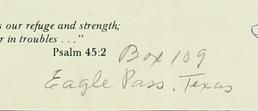 s our refuge and strength;
r in troubles . . ."
Psalm 45:2
Box 109
Eagle Pass, Texas